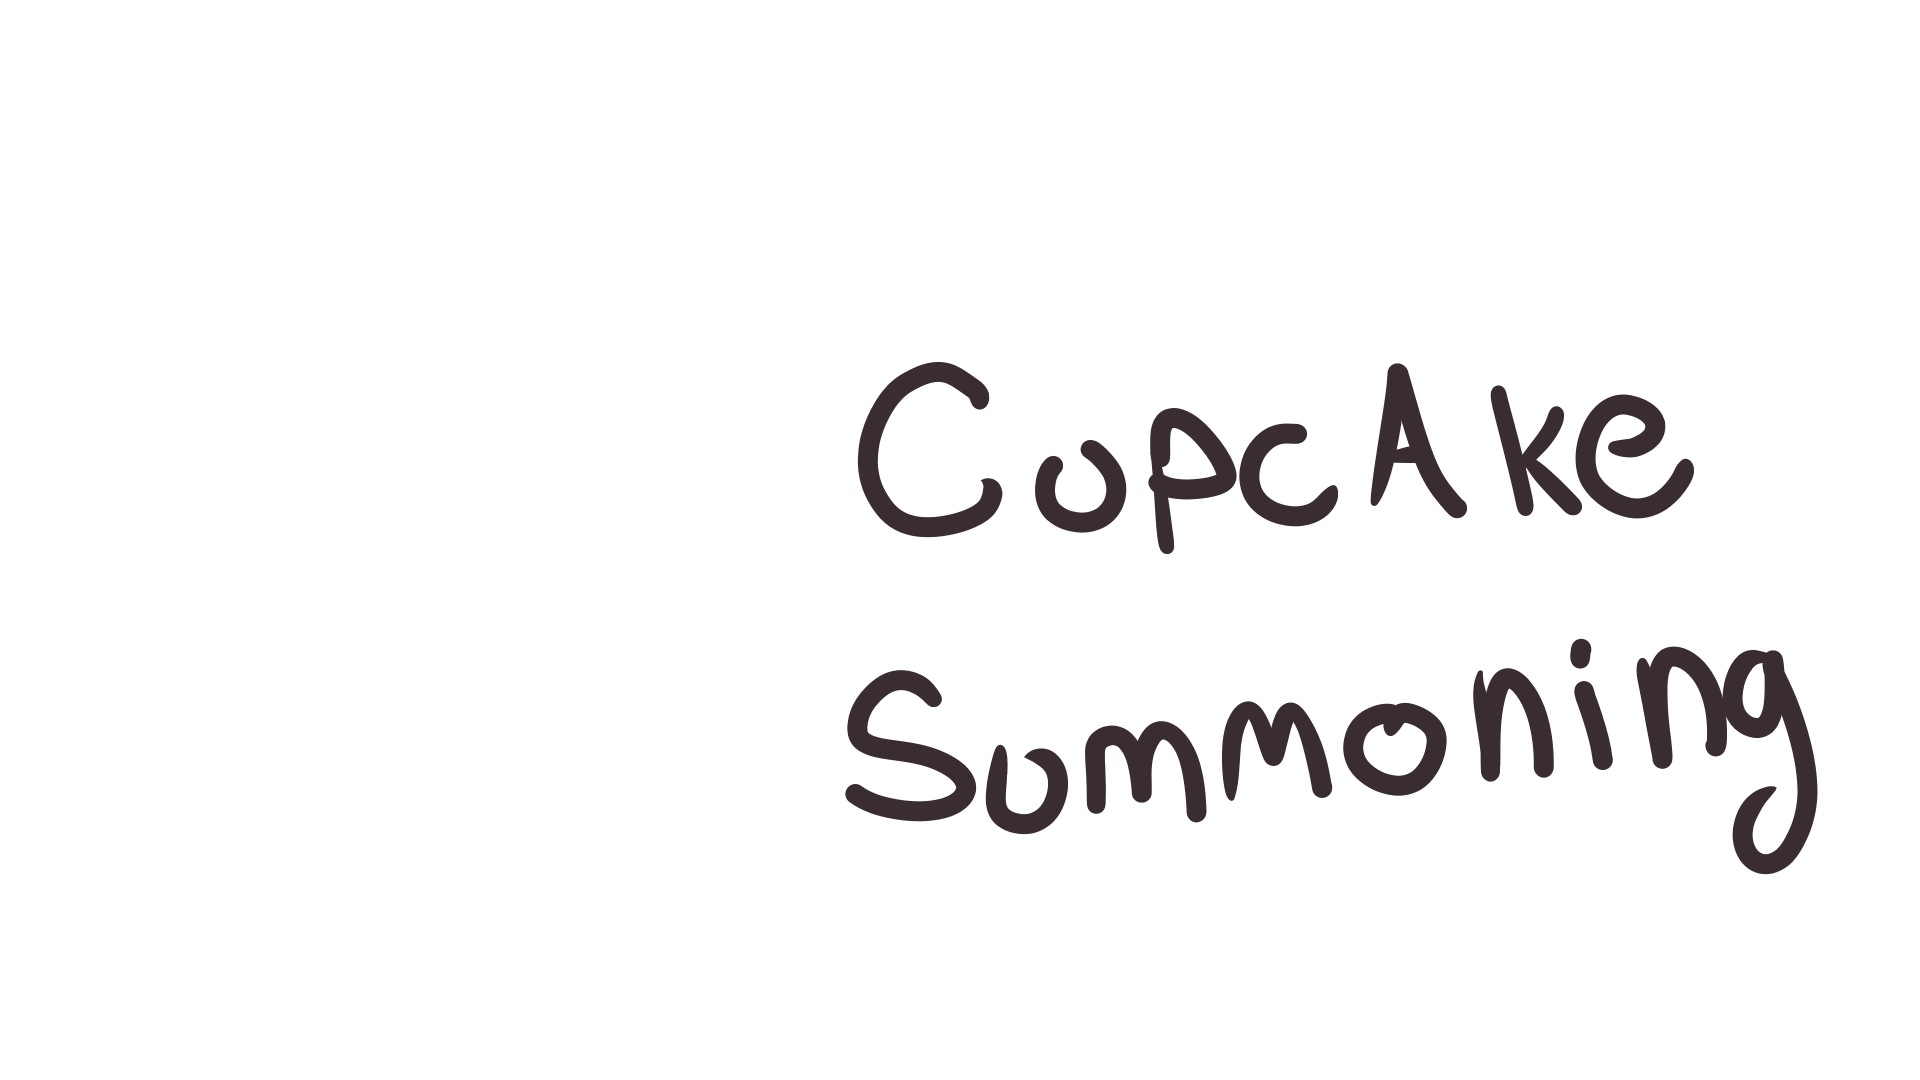 CupcAke
Summoning